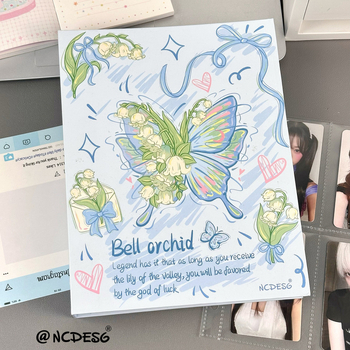 Bell orchid
Legend has it that as long as you receive
the lily of the volley, you will be favored
by the god of luck.
NCDESG®
Instagram
@NCDESG®